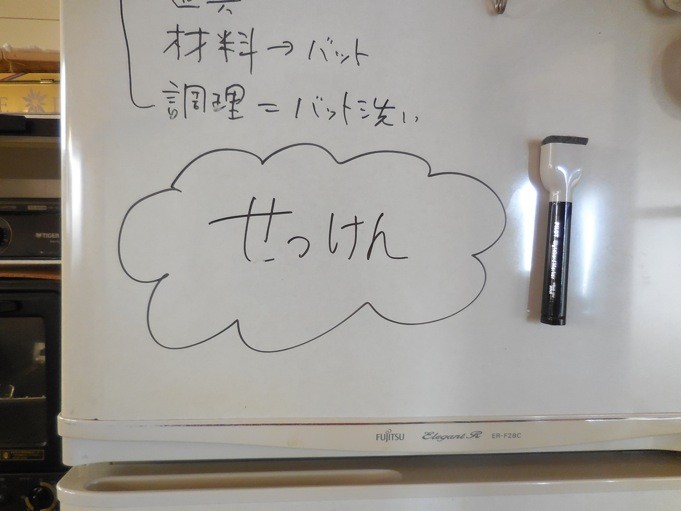 材料→バット
調理=バット洗い
せっけん
FUJITSU Elegant R ER-F28C